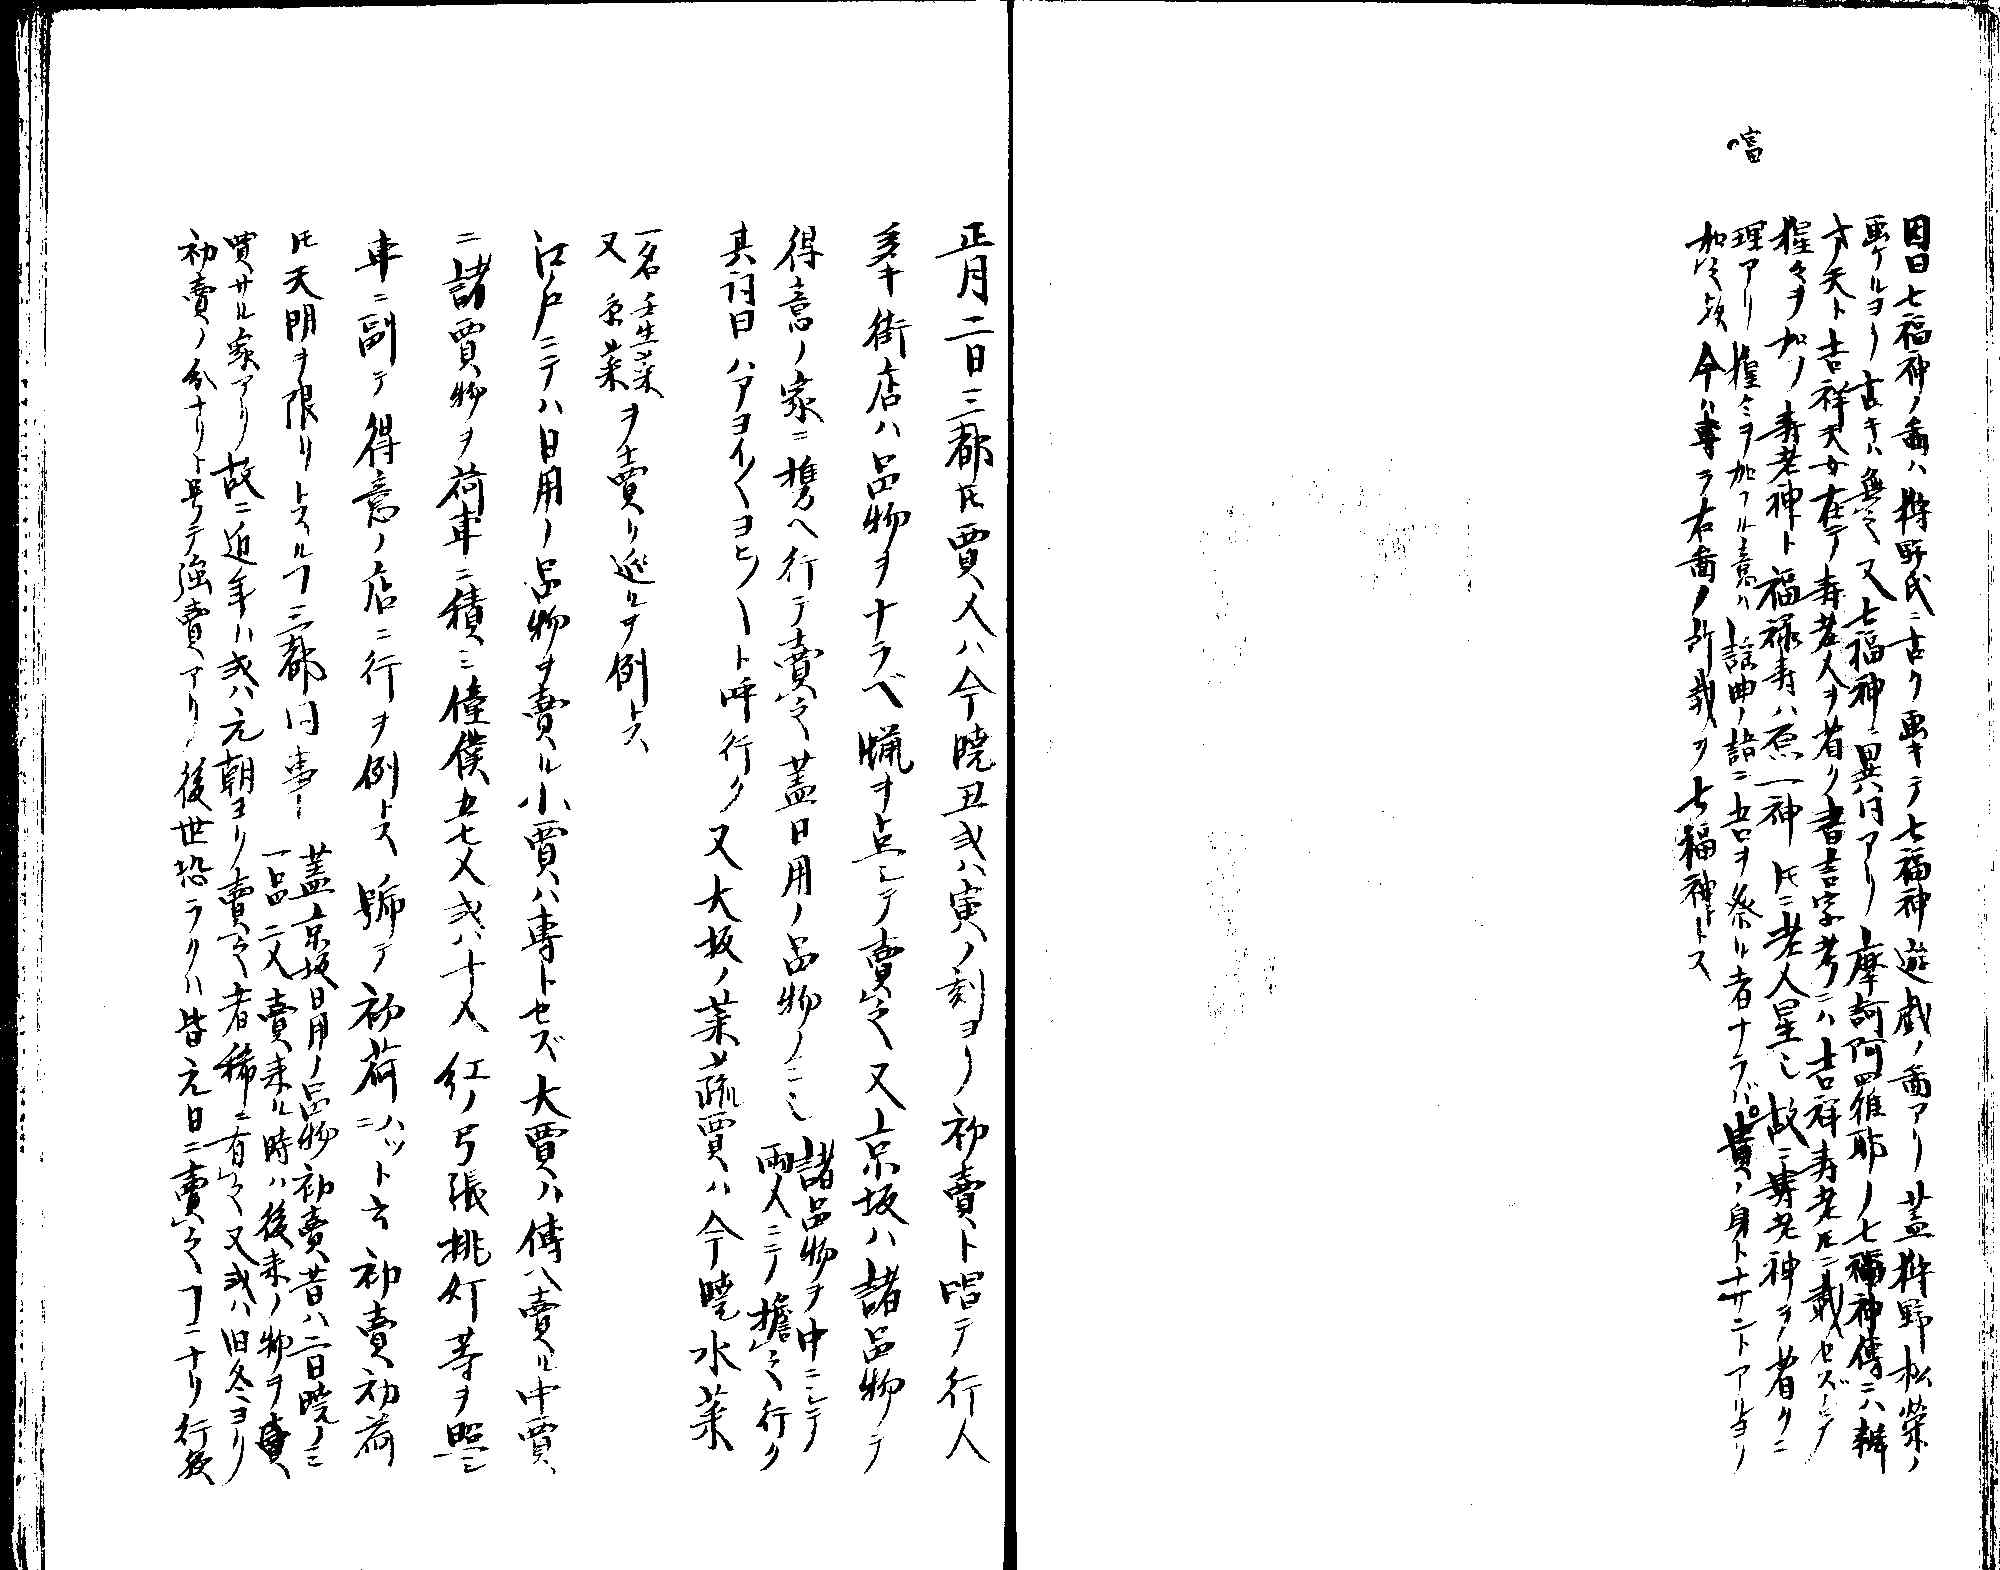 嘻
因曰七福神ノ畵ハ狩野氏ニ古ク画キテ七福神遊戯ノ畵アリ蓋狩野松榮ノ
画ケルヨリ古キハ無之又七福神ニ異同アリ摩訶阿羅耶ノ七福神傳ニハ辨
才天ト吉祥天女在テ寿老人ヲ省ク書言字考ニハ吉祥寿老圧ニ載セズシテ
猩々ヲ加ノ寿老神ト福禄寿ハ原一神圧ニ老人星也故ニ寿老神ヲ省クニ
理アリ猩々ヲ加フル意ハ謡曲ノ詰ニ吾ヲ祭ル者ナラバ貴ノ身トナサントアルヨリ
加之歟今ハ専ラ右畵ノ所載ヲ七福神トス
正月二日三都圧賈人ハ今暁丑或ハ寅ノ刻ヨリ初賣ト唱テ行人
多キ街店ハ品物ヲナラベ蝋ヲ点シテ賣之又京坂ハ諸品物テ
得意ノ家ニ携ヘ行テ賣之蓋日用ノ品物ノミ也
諸品物ヲ中ニシテ
両人ニテ擔之行ク
其詞曰ハアヨイ〱ヨヒ〱ト呼行ク又大坂ノ菜蔬賈ハ今暁水菜
一名壬生菜
又京菜
ヲ賣リ巡ルヲ例トス
江戸ニテハ日用ノ品物ヲ賣ル小賈ハ専トセズ大賈ハ傳ヘ賣ル中賈
ニ諸賈物ヲ荷車ニ積ミ僮僕五七人或ハ十人紅ノ弓張挑灯等ヲ照シ
車ニ副テ得意ノ店ニ行ヲ例トス號テ初荷ニハツト云初賣初荷
圧天明ヲ限リトスルヿ三都同事也
蓋京坂日用ノ品物初賣昔ハ二日暁ノミ
一品二人賣来ル時ハ後来ノ物ヲ賣
買サル家アリ故ニ近年ハ或ハ元朝ヨリ賣之者稀ニ有之又或ハ旧冬ヨリ
初賣ノ分ナリト号テ強賣アリ後世恐ラクハ皆元日ニ賣之ヿニナリ行歟